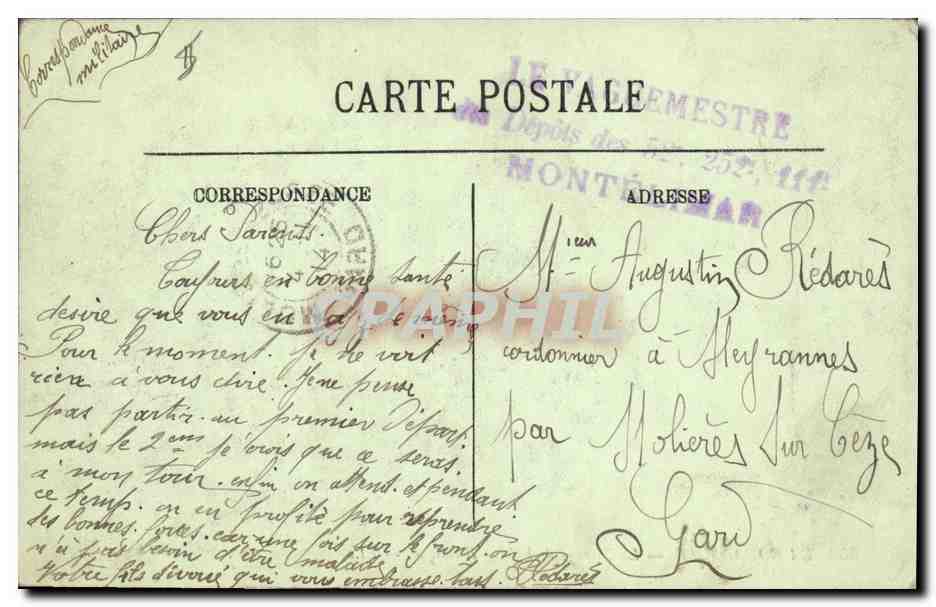 Correspondance
militaire
CARTE POSTALE
LE VAGUEMESTRE
des Dépôts des 52e, 252e, 111e
MONTÉLIMAR
CORRESPONDANCE
ADRESSE
Chers Parents.
Toujours en bonne santé
desire que vous en soyez de même
Pour le moment. Je ne voit
rien à vous dire. Je ne pense
pas partir au premier Départ.
mais le 2eme je crois que ce seras
à mon tour. enfin on attens. et pendant
ce temp. on en profite pour reprendre
des bonnes forces. car une fois sur le front. on
n'a pas besoin d'être malade
Votre fils dévoué qui vous embrasse. tous Rédarès
Mr Augustin Rédarès
cordonnier à Meyrannes
par Molières Sur Cèze
Gard
CPAPHIL